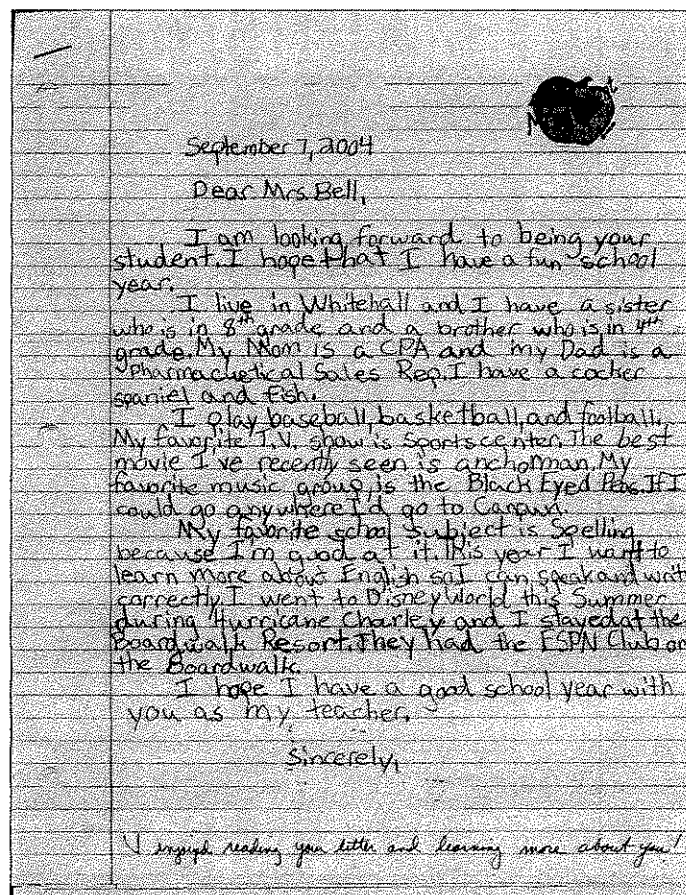 September 7, 2004
Dear Mrs. Bell,
I am looking forward to being your
student. I hope that I have a fun school
year.
I live in Whitehall and I have a sister
who is in 8th grade and a brother who is in 4th
grade. My Mom is a CPA and my Dad is a
Pharmacuetical Sales Rep. I have a cocker
spaniel and fish.
I play baseball, basketball, and football.
My favorite T.V. show is Sportscenter. The best
movie I've recently seen is anchorman. My
favorite music group is the Black Eyed Peas. If I
could go anywhere I'd go to Cancun.
My favorite school subject is Spelling
because I'm good at it. This year I want to
learn more about English so I can speak and write
correctly. I went to Disney World this Summer
during Hurricane Charley and I stayed at the
Boardwalk Resort. They had the ESPN Club on
the Boardwalk.
I hope I have a good school year with
you as my teacher.
Sincerely,
I enjoyed reading your letter and learning more about you!